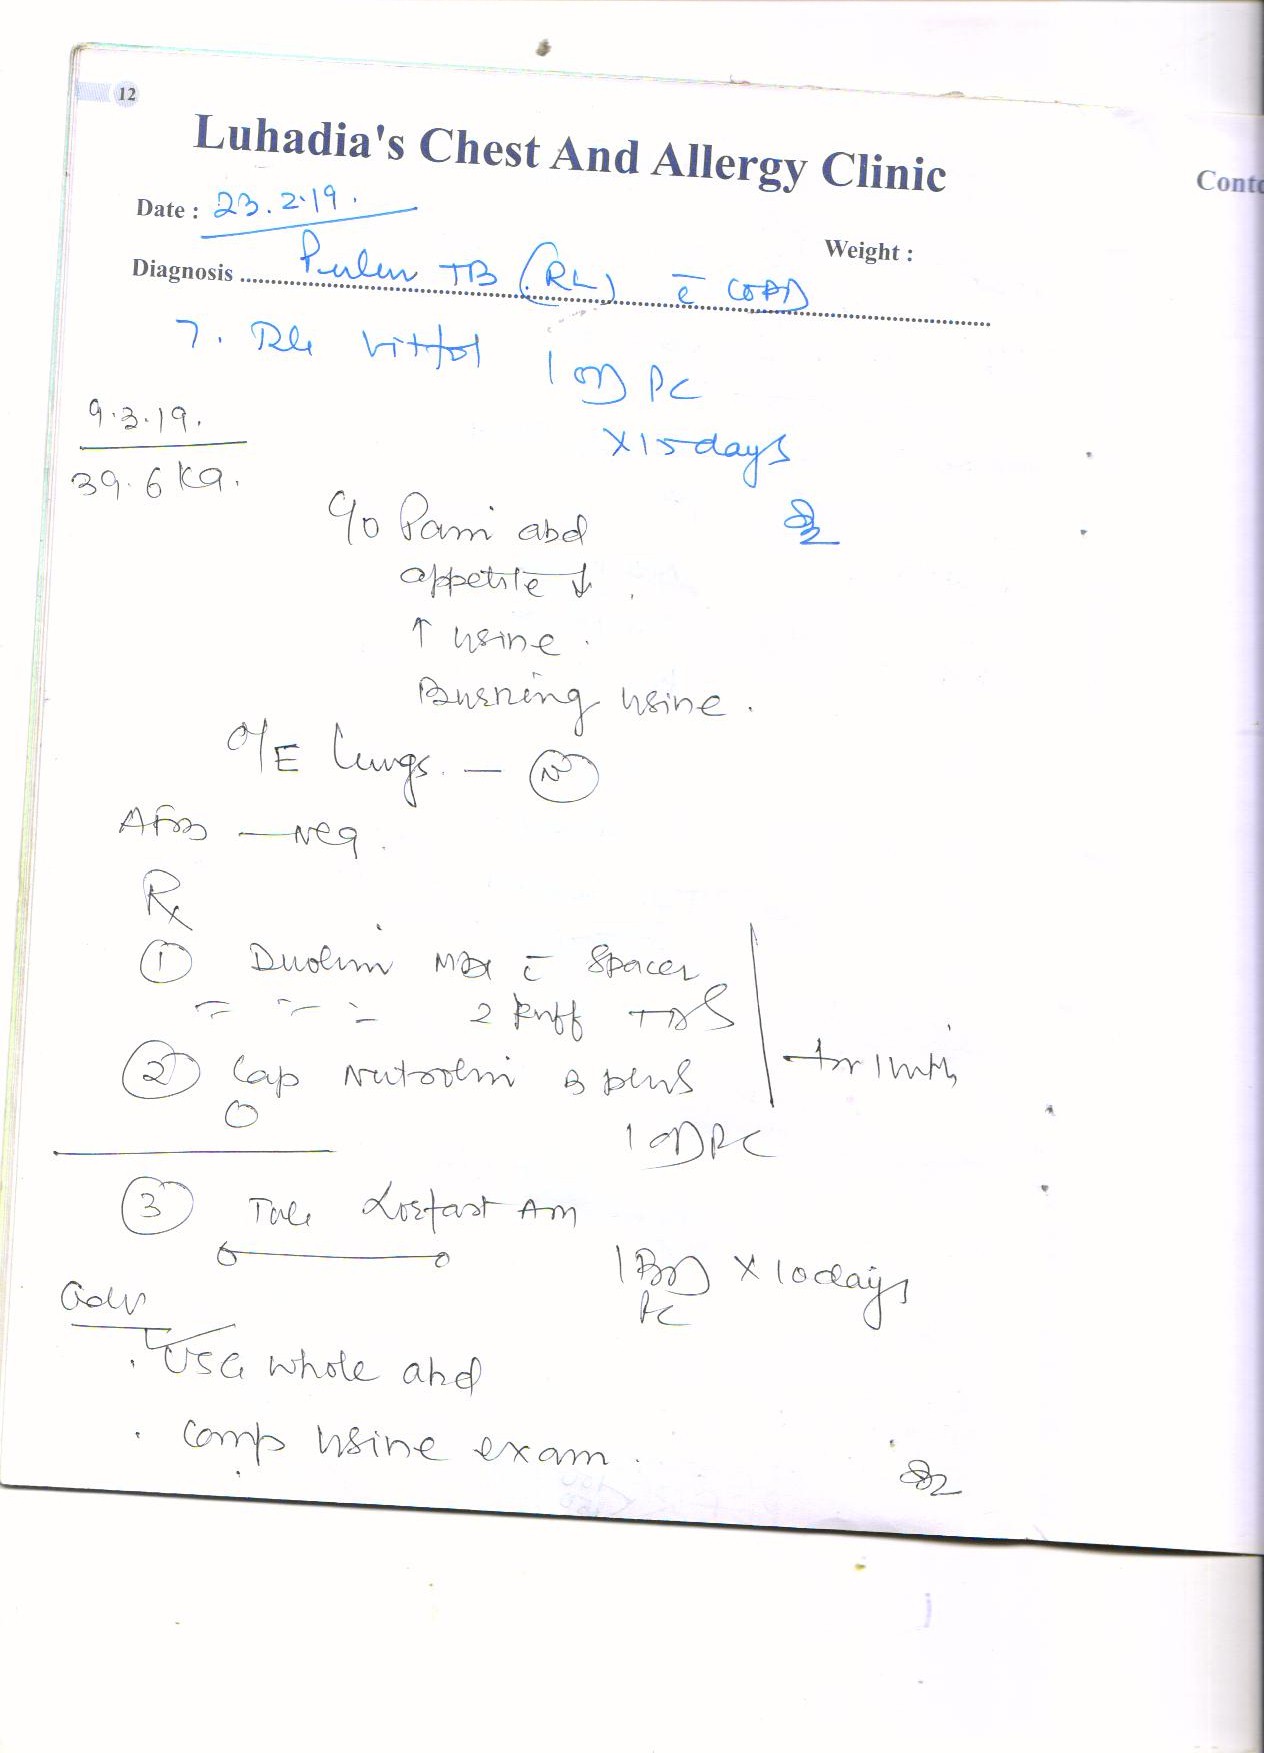 12
Luhadia's Chest And Allergy Clinic
Conto
Date : 23.2.19.
Weight :
Diagnosis Pulm TB (RL) c̄ COPD
7. 1 OD PC
x 15 days
9.3.19.
39.6 Kg.
C/o Pain abd
appetite ↓
↑ urine.
Burning urine.
O/E Lungs. — N
AFB — Neg.
Rx
① Duolin MDI c̄ Spacer
2 puff TDS
② Cap B plus
for 1 mth
1 OD PC
③ Tab AM
1 BD x 10 days
PC
Adv
. USG whole abd
. Comp urine exam.